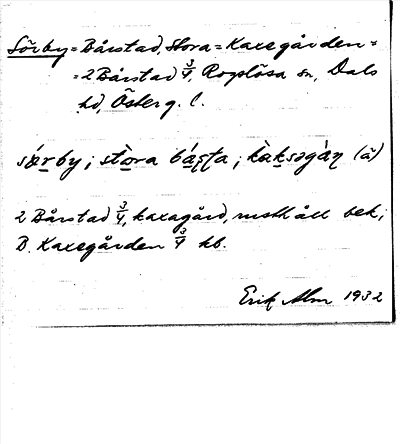 Sörby = Bårstad, Stora = Kaxegården =
= 2 Bårstad 3/4, Rogslösa sn, Dals
hd, Österg. l.
sǿ̀rby; stòra bástta; kàksəgàṇ (ă)
2 Bårstad 3/4, kaxagård, mstk åll bek;
B. Kaxegården 3/4 kb.
Erik Alm 1932